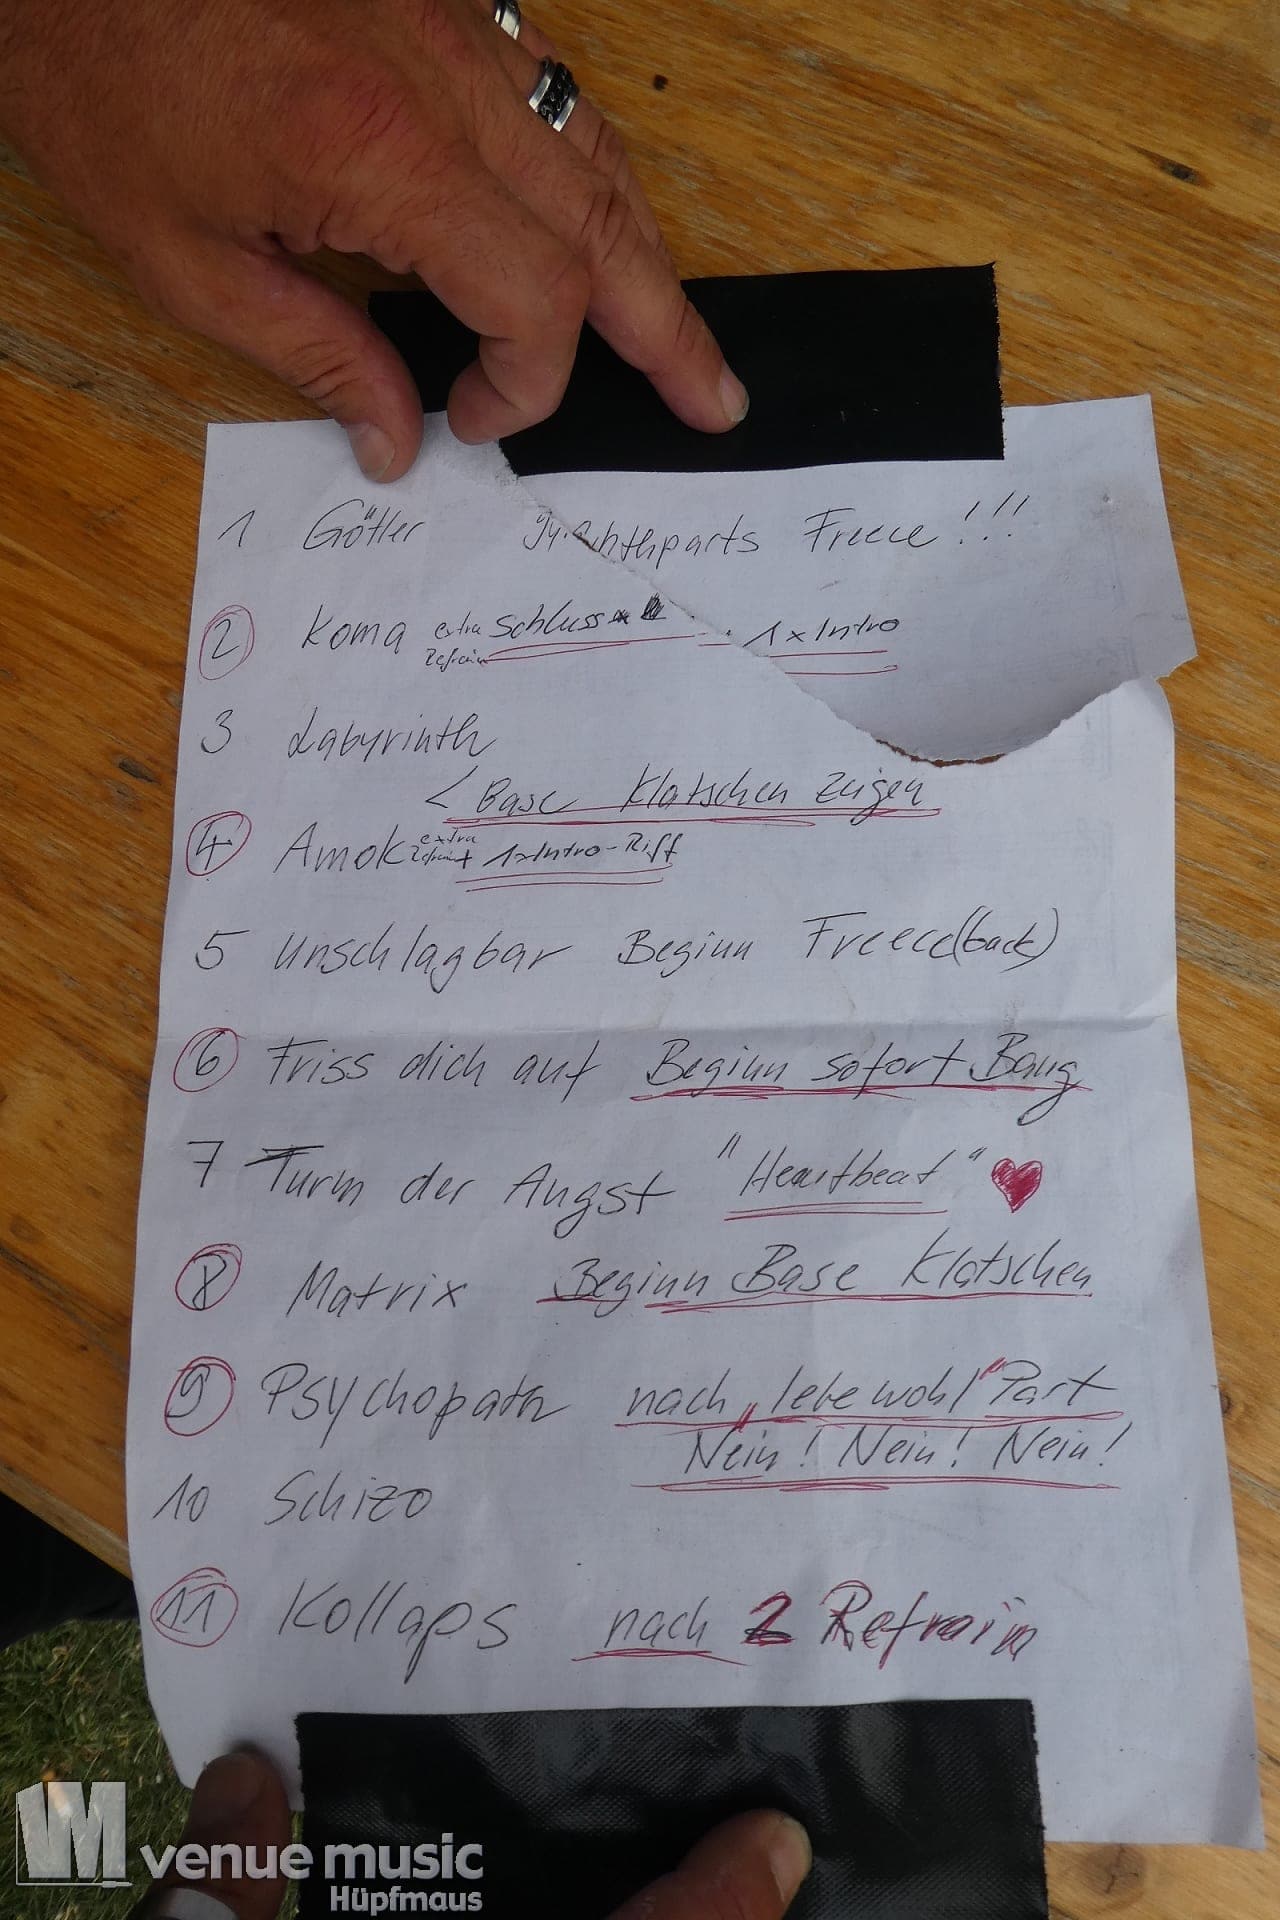 1 Götter Freeze!!!
2 Koma extra Refrain Schluss 1x Intro
3 Labyrinth
< Base Klatschen zeigen
4 Amok extra Refrain + 1x Intro-Riff
5 unschlagbar Beginn Freeee(back)
6 Friss dich auf Beginn sofort Bang
7 Turm der Angst "Heartbeat" ♥
8 Matrix Beginn Base Klatschen
9 Psychopath nach „lebe wohl" Part
Nein! Nein! Nein!
10 Schizo
11 Kollaps nach 2 Refrain
VM venue music
Hüpfmaus